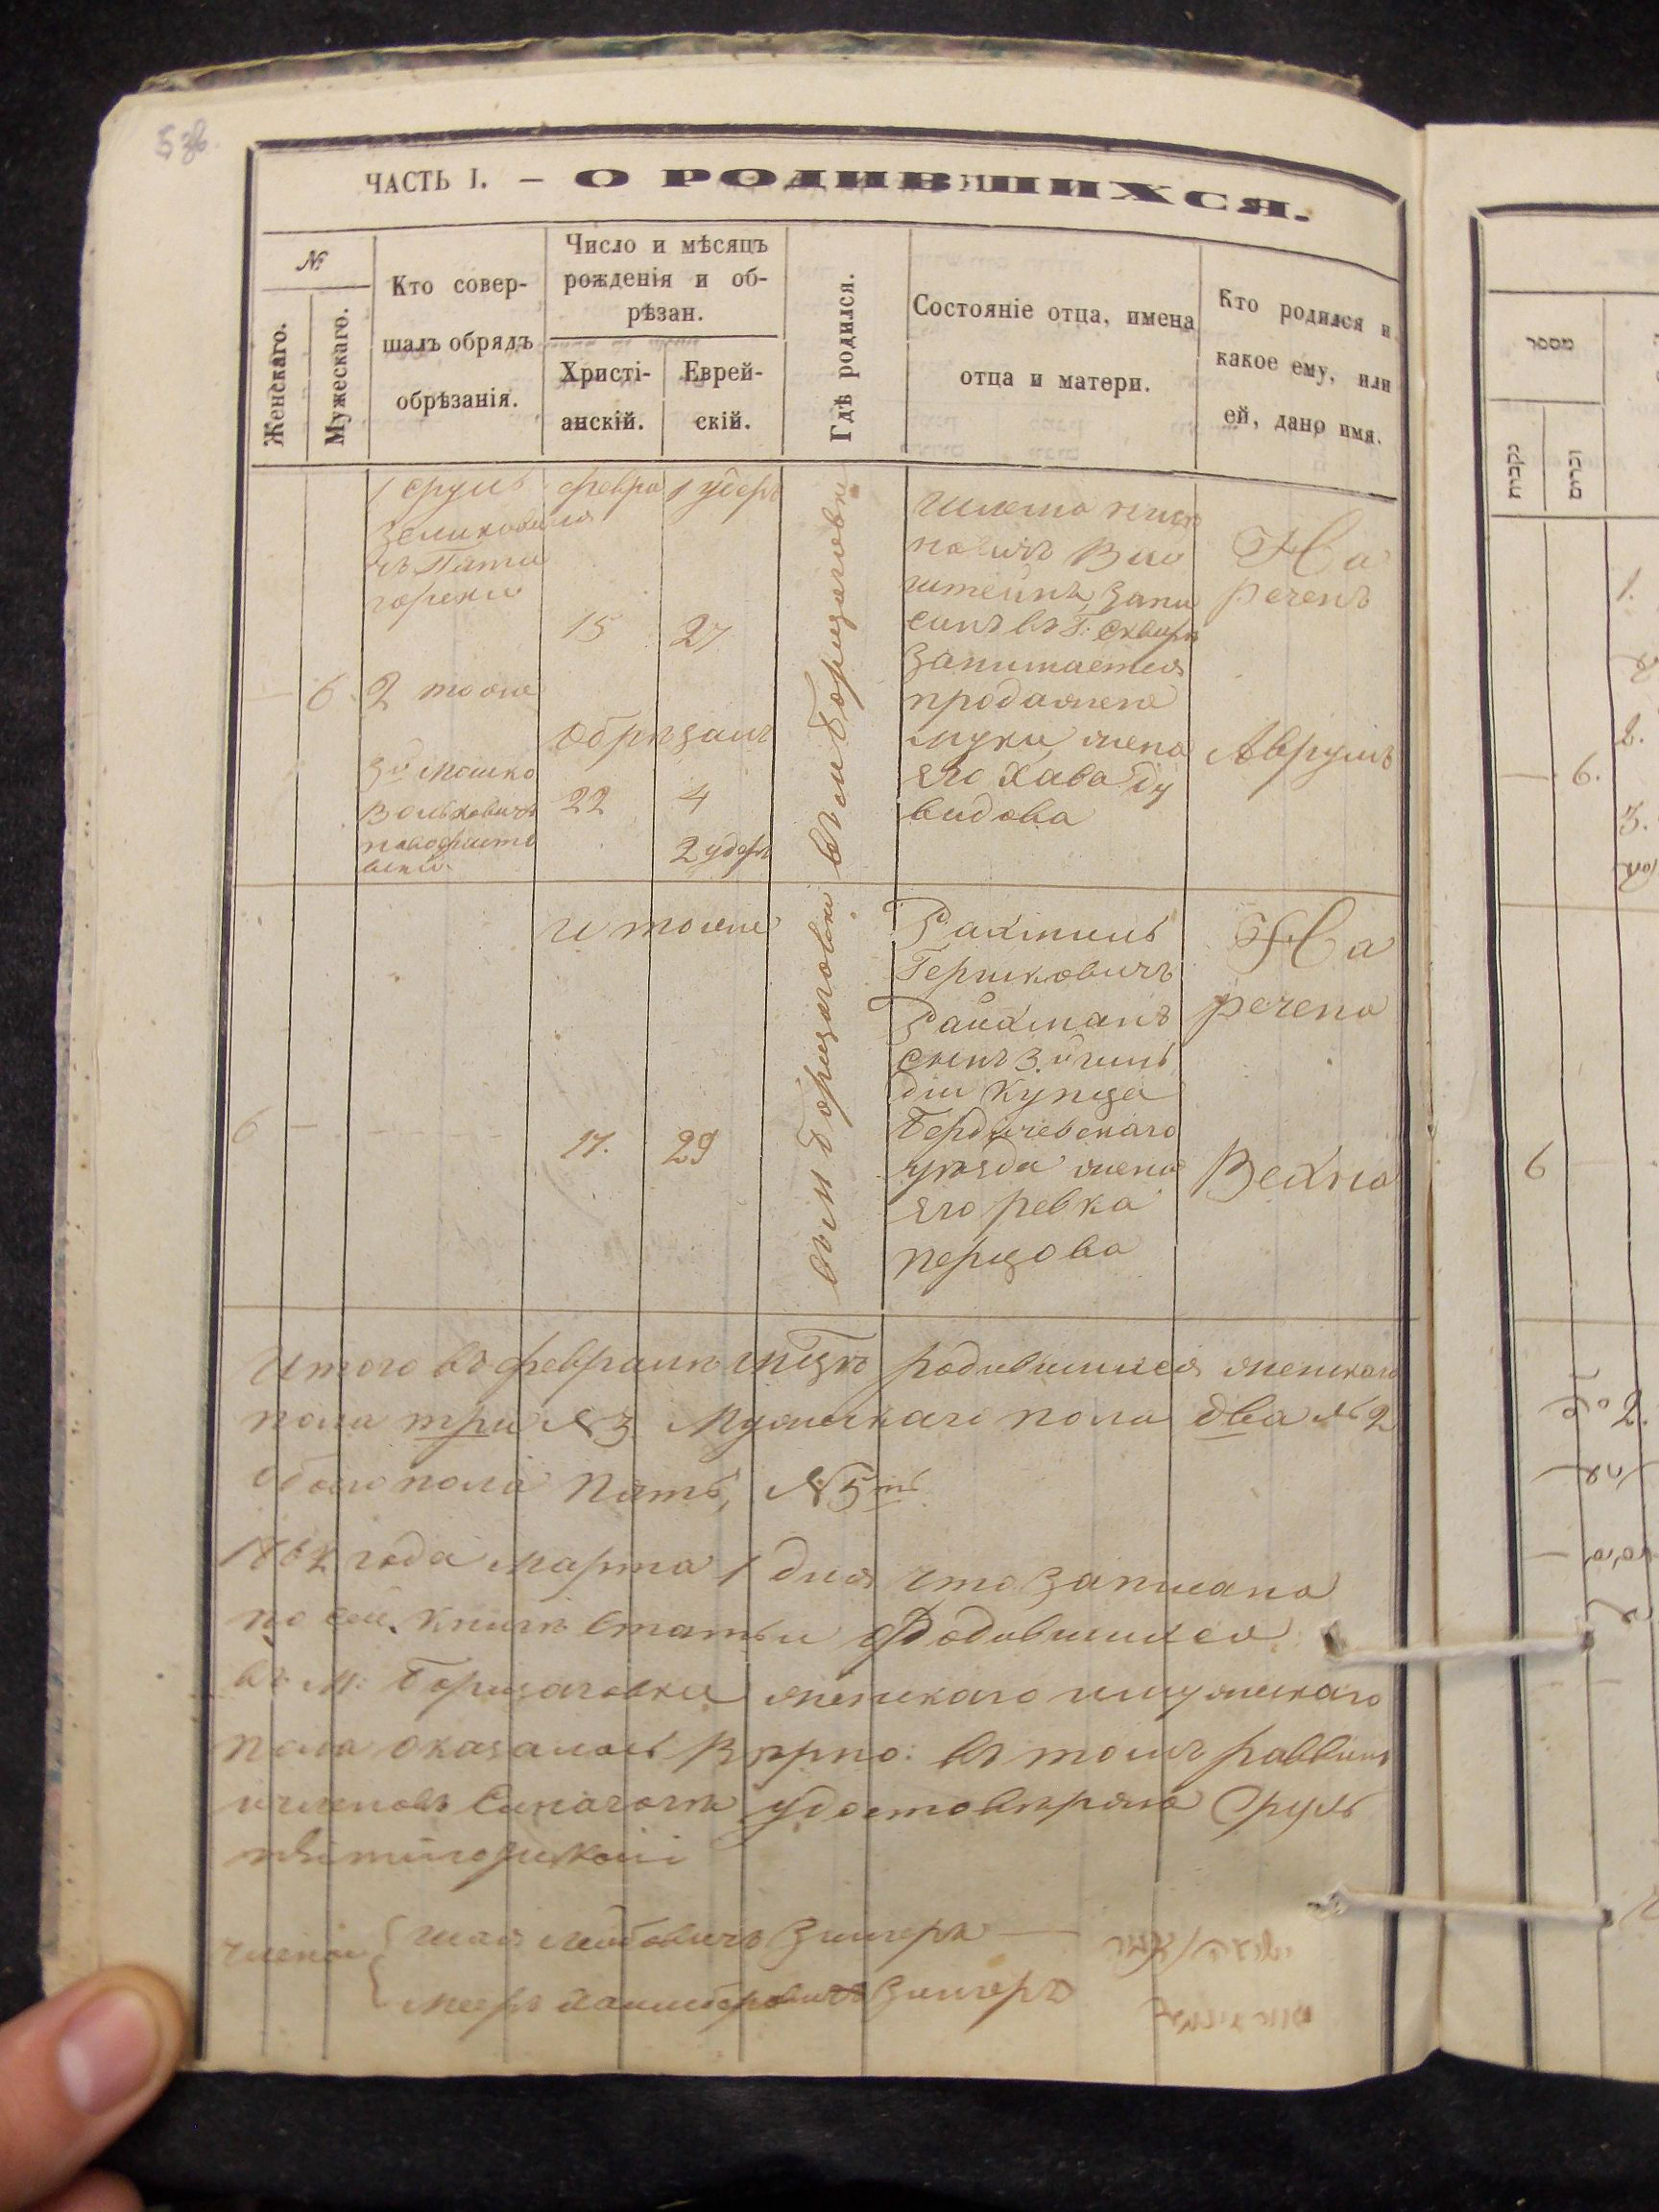 ЧАСТЬ I. — О РОДИВШИХСЯ.
№
Женскаго.
Мужескаго.
Кто совер-
шалъ обрядъ
обрѣзанія.
Число и мѣсяцъ
рожденія и об-
рѣзан.
Христі-
анскій.
Еврей-
скій.
Гдѣ родился.
Состояніе отца, имена
отца и матери.
Кто родился и
какое ему, или
ей, дано имя.
— 6.
1 Сруль
Зеликови
чъ Пяти
горски
2 тоже
3й Мошко
Вольковичъ
февра
ля
15
Обрѣзанъ
22
1 удеръ
27
4
2 удеръ
въ м Борщаговки
Шлема
штейнъ, запи
санъ въ г: Сквирѣ
занимается
продажею
муки жена
его Хава Ду
видова
На
реченъ
Аврумъ
6 —
и тоже
17.
29
въ м Борщаговки
Рахмиль
Гершковичъ
Райхманъ
сынъ 3.й гиль
діи купца
Бердичевскаго
уѣзда жена
его Ревка
Перцова
На
речена
Вехна
Итого въ февралѣ мцѣ родившихся женскаго
пола три № 3 Мужескаго пола два № 2
обоего пола пять, № 5ть
года марта 1 дня что записано
по сей книгѣ статьи родившихся
въ М: Борщаговки женскаго и мужескаго
пола оказалось вѣрно: въ томъ раввинъ
и членовъ Синагоги удостовѣряю Сруль
Пятигорскій
члены
Шая Лейбовичъ Зингеръ —
Мееръ Зингеръ
מספר
נקבות
זכרים
1.
2.
— 6.
3.
6
2